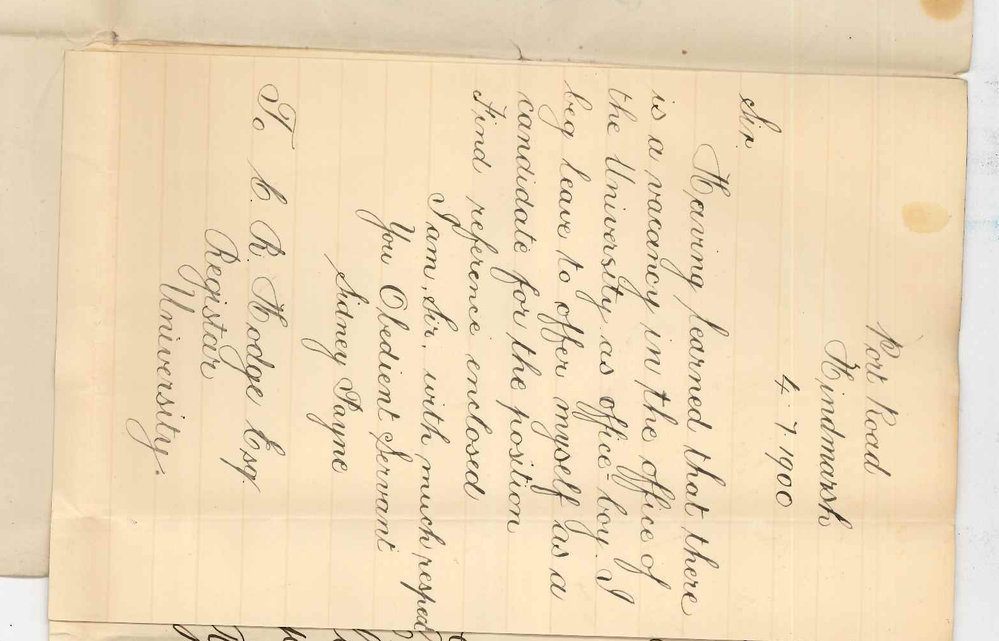 Port Road
Hindmarsh
4.7.1900
Sir
Having learned that there
is a vacancy in the office of
the University as office-boy. I
beg leave to offer myself as a
candidate for the position
Find reference enclosed
I am, Sir, with much respect
You Obedient Servant
Sidney Payne
To C. R. Hodge Esq.
Registar
University.